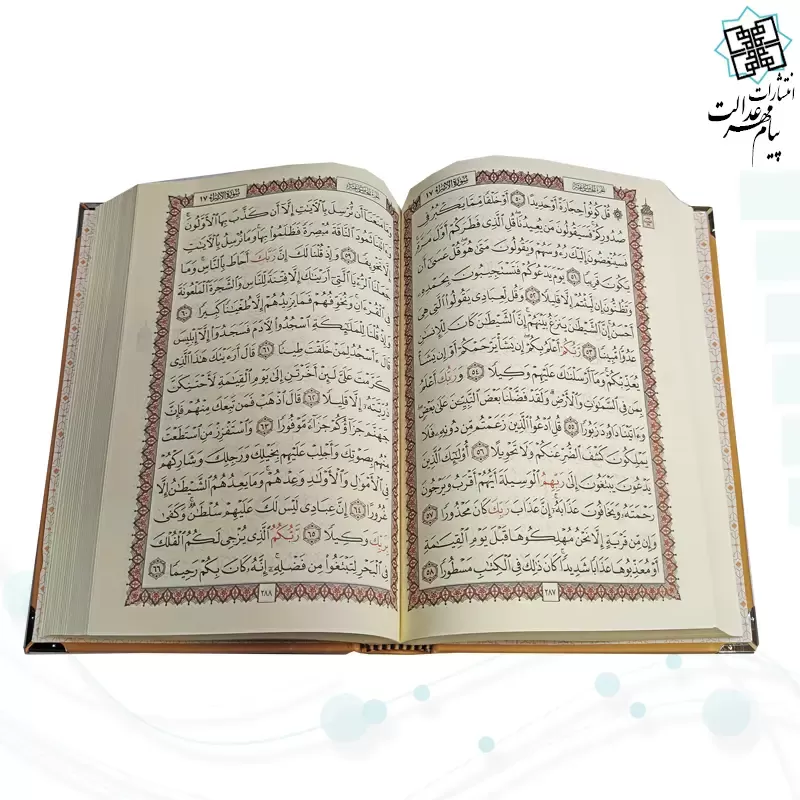 انتشارات
پیام مهر عدالت
سُورَةُ الإِسْرَاءِ ١٧
قُلْ كُونُوا۟ حِجَارَةً أَوْ حَدِيدًا ۝٥٠ أَوْ خَلْقًا مِّمَّا يَكْبُرُ فِى
صُدُورِكُمْ فَسَيَقُولُونَ مَن يُعِيدُنَا قُلِ ٱلَّذِى فَطَرَكُمْ أَوَّلَ مَرَّةٍ
فَسَيُنْغِضُونَ إِلَيْكَ رُءُوسَهُمْ وَيَقُولُونَ مَتَىٰ هُوَ قُلْ عَسَىٰٓ أَن
يَكُونَ قَرِيبًا ۝٥١ يَوْمَ يَدْعُوكُمْ فَتَسْتَجِيبُونَ بِحَمْدِهِۦ
وَتَظُنُّونَ إِن لَّبِثْتُمْ إِلَّا قَلِيلًا ۝٥٢ وَقُل لِّعِبَادِى يَقُولُوا۟ ٱلَّتِى هِىَ
أَحْسَنُ إِنَّ ٱلشَّيْطَٰنَ يَنزَغُ بَيْنَهُمْ إِنَّ ٱلشَّيْطَٰنَ كَانَ لِلْإِنسَٰنِ
عَدُوًّا مُّبِينًا ۝٥٣ رَّبُّكُمْ أَعْلَمُ بِكُمْ إِن يَشَأْ يَرْحَمْكُمْ أَوْ إِن يَشَأْ
يُعَذِّبْكُمْ وَمَآ أَرْسَلْنَٰكَ عَلَيْهِمْ وَكِيلًا ۝٥٤ وَرَبُّكَ أَعْلَمُ
بِمَن فِى ٱلسَّمَٰوَٰتِ وَٱلْأَرْضِ وَلَقَدْ فَضَّلْنَا بَعْضَ ٱلنَّبِيِّۦنَ عَلَىٰ بَعْضٍ
وَءَاتَيْنَا دَاوُۥدَ زَبُورًا ۝٥٥ قُلِ ٱدْعُوا۟ ٱلَّذِينَ زَعَمْتُم مِّن دُونِهِۦ فَلَا
يَمْلِكُونَ كَشْفَ ٱلضُّرِّ عَنكُمْ وَلَا تَحْوِيلًا ۝٥٦ أُو۟لَٰٓئِكَ ٱلَّذِينَ
يَدْعُونَ يَبْتَغُونَ إِلَىٰ رَبِّهِمُ ٱلْوَسِيلَةَ أَيُّهُمْ أَقْرَبُ وَيَرْجُونَ
رَحْمَتَهُۥ وَيَخَافُونَ عَذَابَهُۥٓ إِنَّ عَذَابَ رَبِّكَ كَانَ مَحْذُورًا ۝٥٧
وَإِن مِّن قَرْيَةٍ إِلَّا نَحْنُ مُهْلِكُوهَا قَبْلَ يَوْمِ ٱلْقِيَٰمَةِ
أَوْ مُعَذِّبُوهَا عَذَابًا شَدِيدًا كَانَ ذَٰلِكَ فِى ٱلْكِتَٰبِ مَسْطُورًا ۝٥٨
٢٨٧
سُورَةُ الإِسْرَاءِ ١٧
وَمَا مَنَعَنَآ أَن نُّرْسِلَ بِٱلْءَايَٰتِ إِلَّآ أَن كَذَّبَ بِهَا ٱلْأَوَّلُونَ
وَءَاتَيْنَا ثَمُودَ ٱلنَّاقَةَ مُبْصِرَةً فَظَلَمُوا۟ بِهَا وَمَا نُرْسِلُ بِٱلْءَايَٰتِ
إِلَّا تَخْوِيفًا ۝٥٩ وَإِذْ قُلْنَا لَكَ إِنَّ رَبَّكَ أَحَاطَ بِٱلنَّاسِ وَمَا
جَعَلْنَا ٱلرُّءْيَا ٱلَّتِىٓ أَرَيْنَٰكَ إِلَّا فِتْنَةً لِّلنَّاسِ وَٱلشَّجَرَةَ ٱلْمَلْعُونَةَ
فِى ٱلْقُرْءَانِ وَنُخَوِّفُهُمْ فَمَا يَزِيدُهُمْ إِلَّا طُغْيَٰنًا كَبِيرًا ۝٦٠
وَإِذْ قُلْنَا لِلْمَلَٰٓئِكَةِ ٱسْجُدُوا۟ لِءَادَمَ فَسَجَدُوٓا۟ إِلَّآ إِبْلِيسَ
قَالَ ءَأَسْجُدُ لِمَنْ خَلَقْتَ طِينًا ۝٦١ قَالَ أَرَءَيْتَكَ هَٰذَا ٱلَّذِى
كَرَّمْتَ عَلَىَّ لَئِنْ أَخَّرْتَنِ إِلَىٰ يَوْمِ ٱلْقِيَٰمَةِ لَأَحْتَنِكَنَّ
ذُرِّيَّتَهُۥٓ إِلَّا قَلِيلًا ۝٦٢ قَالَ ٱذْهَبْ فَمَن تَبِعَكَ مِنْهُمْ فَإِنَّ
جَهَنَّمَ جَزَآؤُكُمْ جَزَآءً مَّوْفُورًا ۝٦٣ وَٱسْتَفْزِزْ مَنِ ٱسْتَطَعْتَ
مِنْهُم بِصَوْتِكَ وَأَجْلِبْ عَلَيْهِم بِخَيْلِكَ وَرَجِلِكَ وَشَارِكْهُمْ
فِى ٱلْأَمْوَٰلِ وَٱلْأَوْلَٰدِ وَعِدْهُمْ وَمَا يَعِدُهُمُ ٱلشَّيْطَٰنُ إِلَّا
غُرُورًا ۝٦٤ إِنَّ عِبَادِى لَيْسَ لَكَ عَلَيْهِمْ سُلْطَٰنٌ وَكَفَىٰ
بِرَبِّكَ وَكِيلًا ۝٦٥ رَّبُّكُمُ ٱلَّذِى يُزْجِى لَكُمُ ٱلْفُلْكَ
فِى ٱلْبَحْرِ لِتَبْتَغُوا۟ مِن فَضْلِهِۦٓ إِنَّهُۥ كَانَ بِكُمْ رَحِيمًا ۝٦٦
٢٨٨